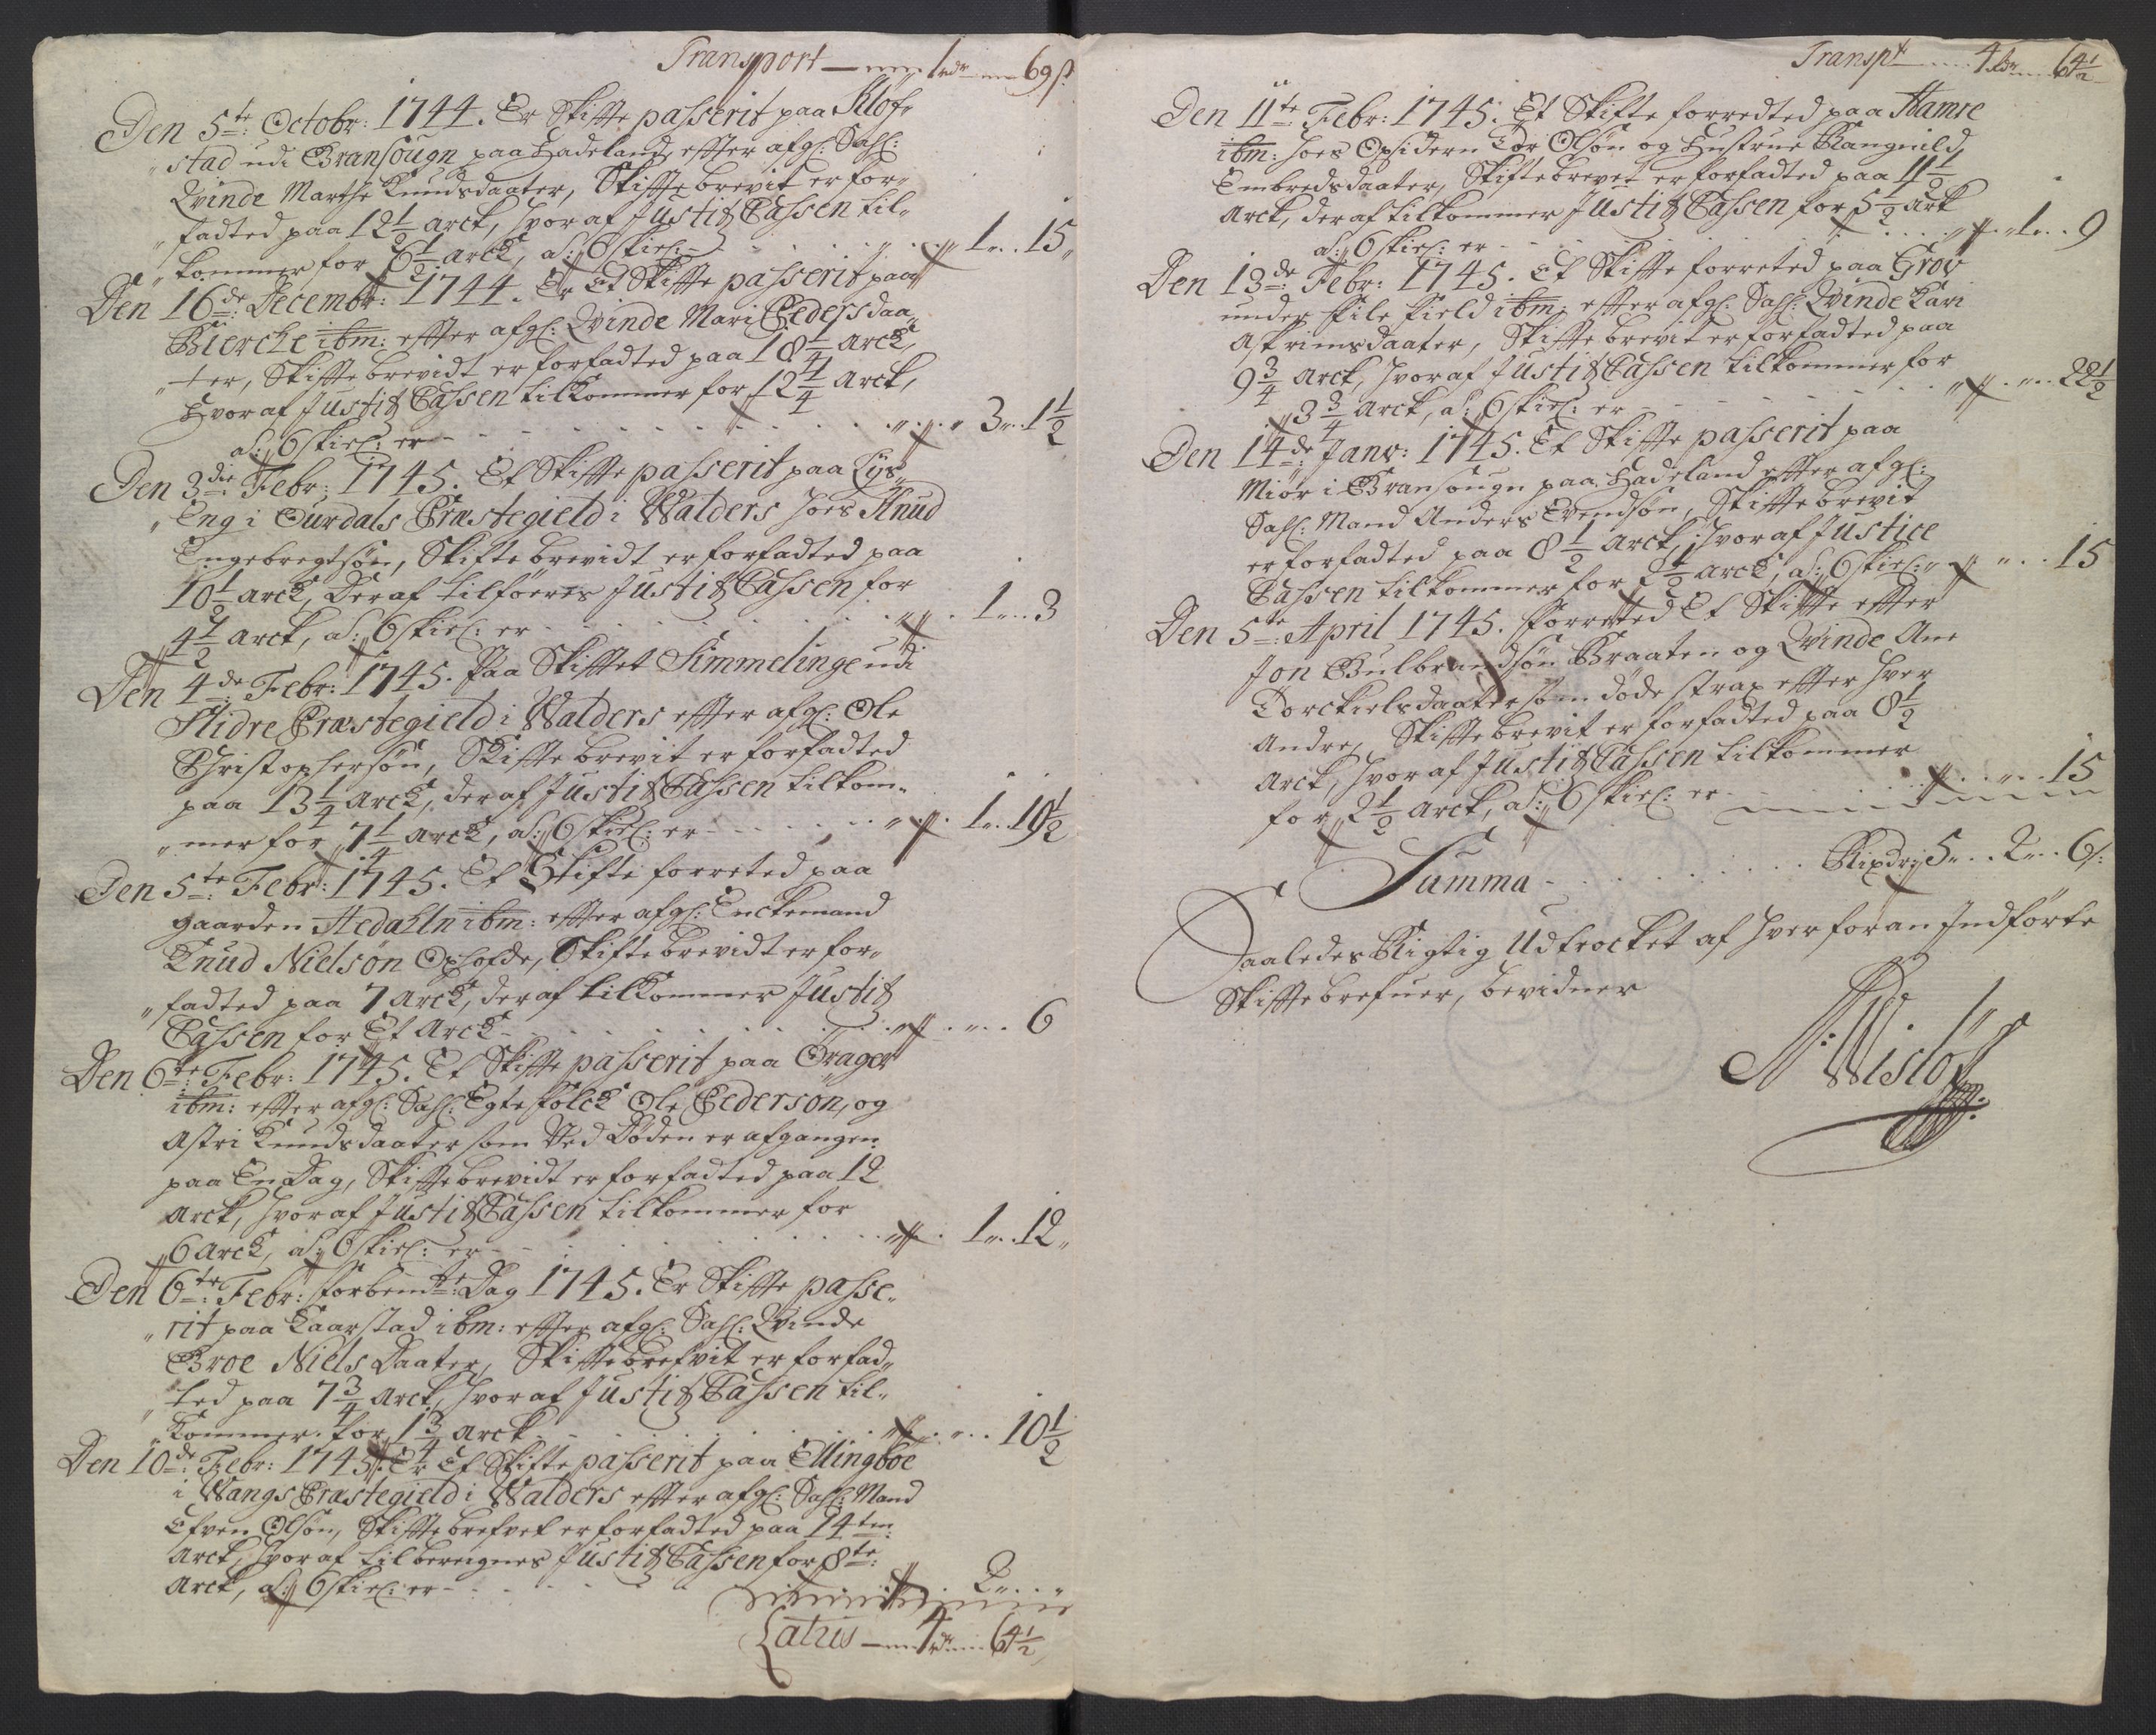 Transport — 1 rdr — 69 s:
Den 5te: Octobr: 1744. Er Skifte passerit paa Klof„
„stad udi Gransougn paa Hadeland, effter afg: Sahl:
Qvinde Marthe Knudsdaater, Skifftebrevit er for„
„fadted paa 12 1/2 arck, hvoraf Justitz Cassen til„
„kommer for 6 1/2 arck, a: 6 skiel: - - - 1 „ 15 „
Den 16de: Decembr: 1744. Er Et Skiffte passerit paa
Biercke ibm: effter afg: Qvinde Mari Pedersdaa„
„ter, Skifftebrevidt er forfadted paa 18 1/4 arck,
Hvoraf Justitz Cassen tilkommer for 12 1/4 arck,
a: 6 skiel: er - - - 3 „ 1 1/2
Den 3die Febr: 1745. Et Skiffte passerit paa Lys„
„Eng i Ourdals Præstegield i Walders hoes Knud
Engebregtsøn, Skifftebrevidt er forfadted paa
10 1/2 arck, Deraf tilføeres Justitz Cassen for
4 1/2 arck, a: 6 skiel: er - - - 1 „ 3
Den 4de Febr: 1745. Paa Skifftet Simmelinge udi
Slidre Præstegield i Walders effter afg: Ole
Christophersøn, Skifftebrevit er forfadted
paa 13 1/4 arck, deraf Justitz Cassen tilkom„
„mer for 7 1/4 arck, a: 6 skiel: er - - - 1 „ 19 1/2
Den 5te: Febr: 1745. Et Skifte forreted paa
gaarden Hedahln ibm: effter afg: Enckemand
Knud Nielsøn Opholde, Skifftebrevidt er for„
„fadted paa 7 arck, deraf tilkommer Justitz
Cassen for Et arck - - - 6
Den 6te: Febr: 1745. Et Skiffte passerit paa Qrager
ibm: effter afg: Sahl: Egtefolck Ole Pedersøn, og
Astri Knudsdaater som Ved Døden er afgangen
paa En Dag, Skifftebrevidt er forfadted paa 12
Arck, hvoraf Justitz Cassen tilkommer for
6 Arck, a: 6 skiel: er - - - 1 „ 12 „
Den 6te: Febr: forbemte: Dag 1745. Er Skiffte passe„
„rit paa Kaarstad ibm: effter afg: Sahl: Qvinde
Groe Niels Daater, Skifftebrefvit er forfad„
„ted paa 7 3/4 Arck, hvoraf Justitz Cassen til„
„kommer for 1 3/4 arck - - - 10 1/2
Den 10de: Febr: 1745. Er Et Skiffte passerit paa Ellingboe
i Wangs Præstegield i Walders effter afg: Sahl: Mand
Efven Olsøn, Skifftebrefvet er forfadted paa 14ten
Arck, hvoraf tilberegnes Justitz Cassen for 8te:
Arck, a: 6 skiel: er - - - 2 „ „
Latus — 4 rdr — 64 1/2
Transpt — 4 Rdr — 64 1/2
Den 11te Febr: 1745. Et Skifte forredted paa Hamre
ibm: hoes Opsidern Tor Olsøn og Hustrue Rangnild
Embredsdaater, Skifftebrevet er forfadted paa 11 1/2
Arck, deraf tilkommer Justitz Cassen for 5 1/2 ark
a: 6 skiel: er - - - 1 „ 9
Den 13de: Febr: 1745. Et Skiffte forreted paa Grov
under File Field ibm: effter afg: Sahl: Qvinde Kari
Askrimsdaater, Skifftebrevit er forfadted paa
9 3/4 Arck, hvoraf Justitz Cassen tilkommer for
3 3/4 Arck, a: 6 skiel: er - - - 22 1/2
Den 14de: Janv: 1745. Et Skiffte passerit paa
Miør i Gransougn paa Hadeland effter afg:
Sahl: Mand Anders Evendsøn, Skifftebrevit
er forfadted paa 8 1/2 Arck, hvoraf Justice
Cassen tilkommer for 2 1/2 arck, a: 6 skiel: „ 15
Den 5te: April 1745. Forreted Et Skiffte effter
Jon Gulbrandsøn Braaten og Qvinde Ane
Torckielsdaater som døde strax effter hver
Andre, Skifftebrevit er forfadted paa 8 1/2
Arck, hvoraf Justitz Cassen tilkommer
for 2 1/2 arck, a: 6 skiel: er - - - 15
Summa - - - Rixdr: 5 „ 2 „ 6 s:
Saaledes Rigtig Udtrocket af hver foran Indførte
Skifftebrefuer, bevidner
N: Wisløf